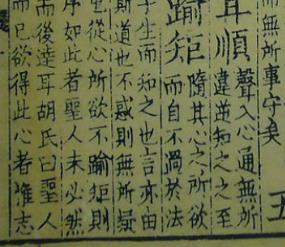 而無所事守矣
五
耳順
聲入心通無所
違逆知之之至
踰矩
隨其心之所欲
而自不過於法
子生而知之也言亦由
斯道也不惑則無所疑
從心所欲不踰矩則
序如此者聖人未必然
而後達耳胡氏曰聖人
而已欲得此心者惟志